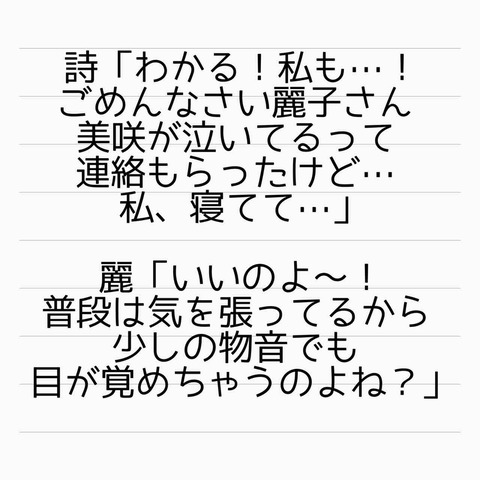 詩「わかる！私も…！
ごめんなさい麗子さん
美咲が泣いてるって
連絡もらったけど…
私、寝てて…」
麗「いいのよ〜！
普段は気を張ってるから
少しの物音でも
目が覚めちゃうのよね？」